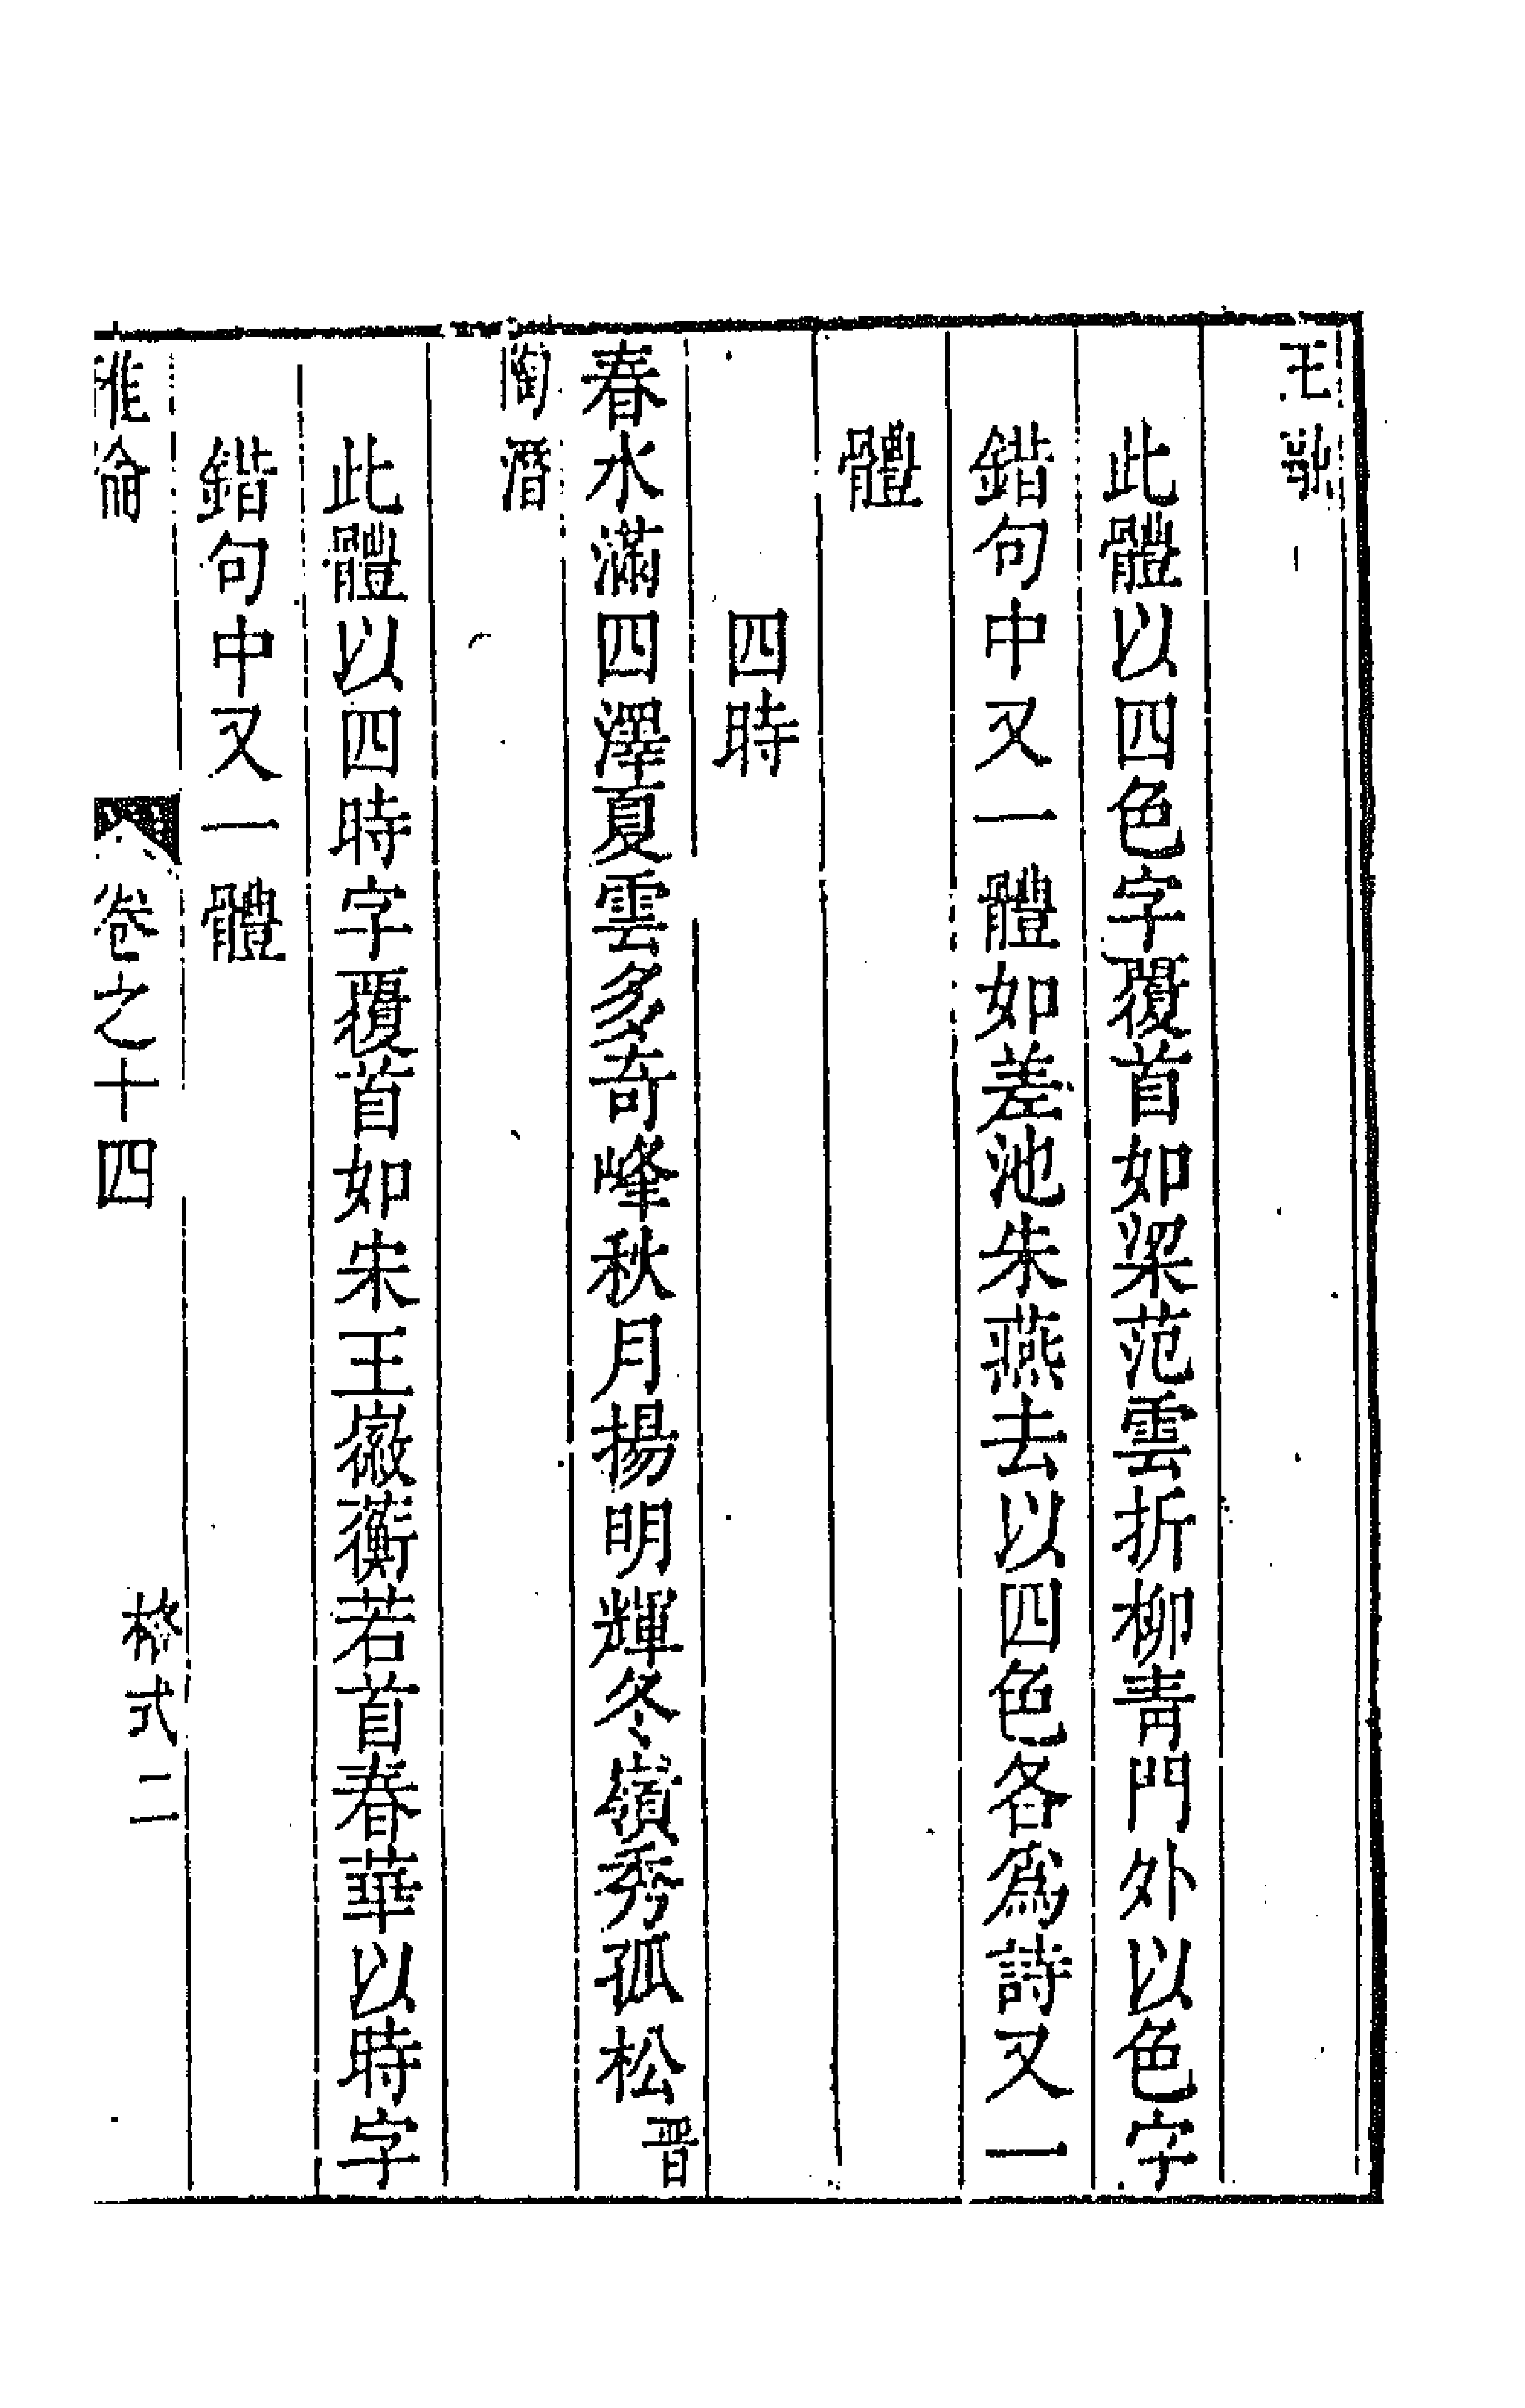 王融
此體以四色字覆首如梁范雲折柳青門外以色字
錯句中又一體如差池朱燕去以四色各爲詩又一
體
四時
春水滿四澤夏雲多奇峰秋月揚明輝冬嶺秀孤松晋
陶潛
此體以四時字覆首如宋王微蘅若首春華以時字
錯句中又一體
雅倫
卷之十四
格式二